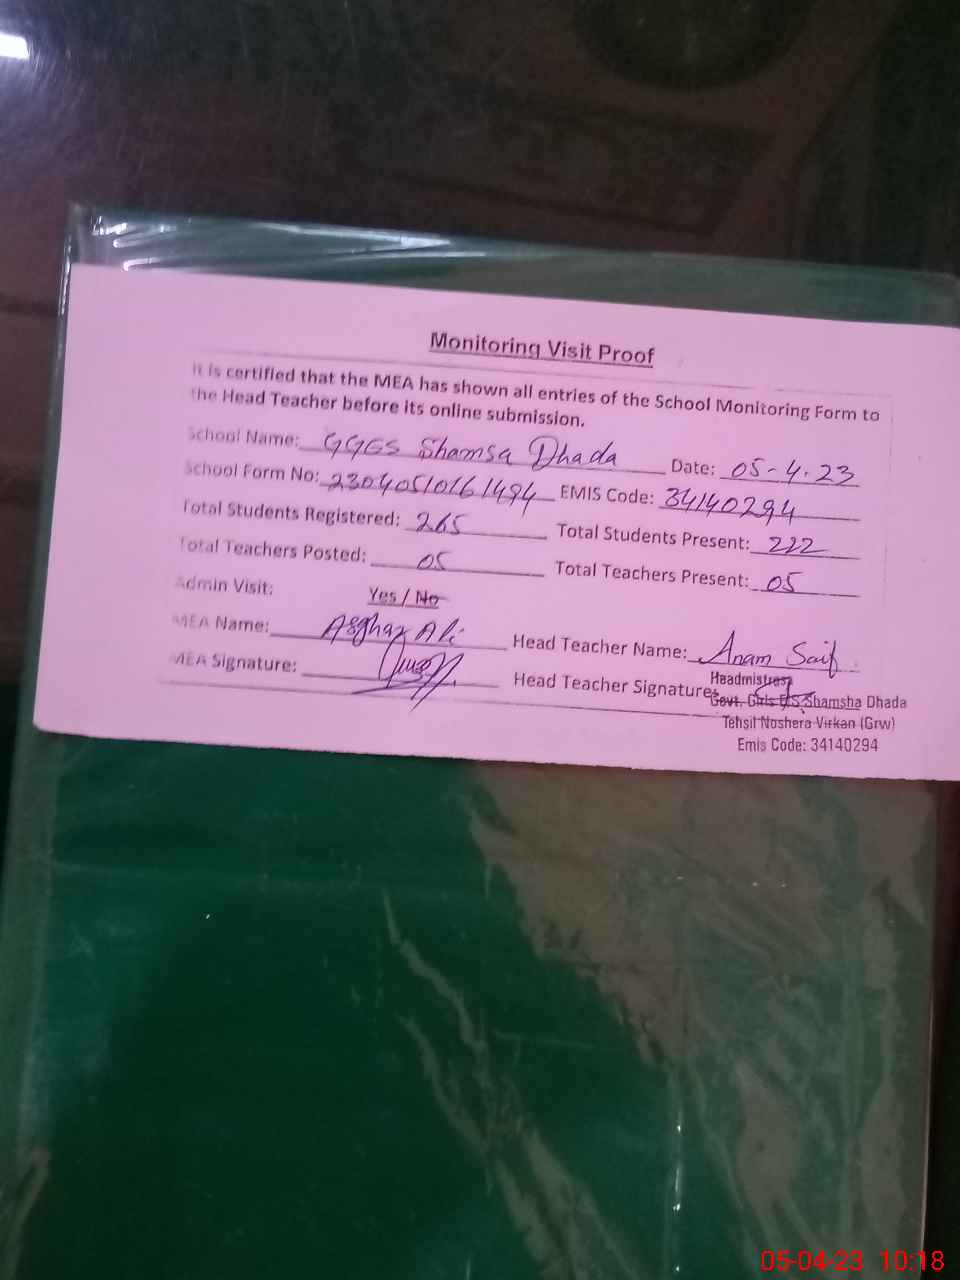 Monitoring Visit Proof
It is certified that the MEA has shown all entries of the School Monitoring Form to
the Head Teacher before its online submission.
School Name: GGES Shamsa Dhada Date: 05-4-23
School Form No: 23040510161494 EMIS Code: 34140294
Total Students Registered: 265 Total Students Present: 222
Total Teachers Posted: 05 Total Teachers Present: 05
Admin Visit: Yes / No
MEA Name: Asghar Ali Head Teacher Name: Anam Saif
MEA Signature: Head Teacher Signature:
Headmistress
Govt. Girls E/S Shamsha Dhada
Tehsil Noshera Virkan (Grw)
Emis Code: 34140294
05-04-23 10:18